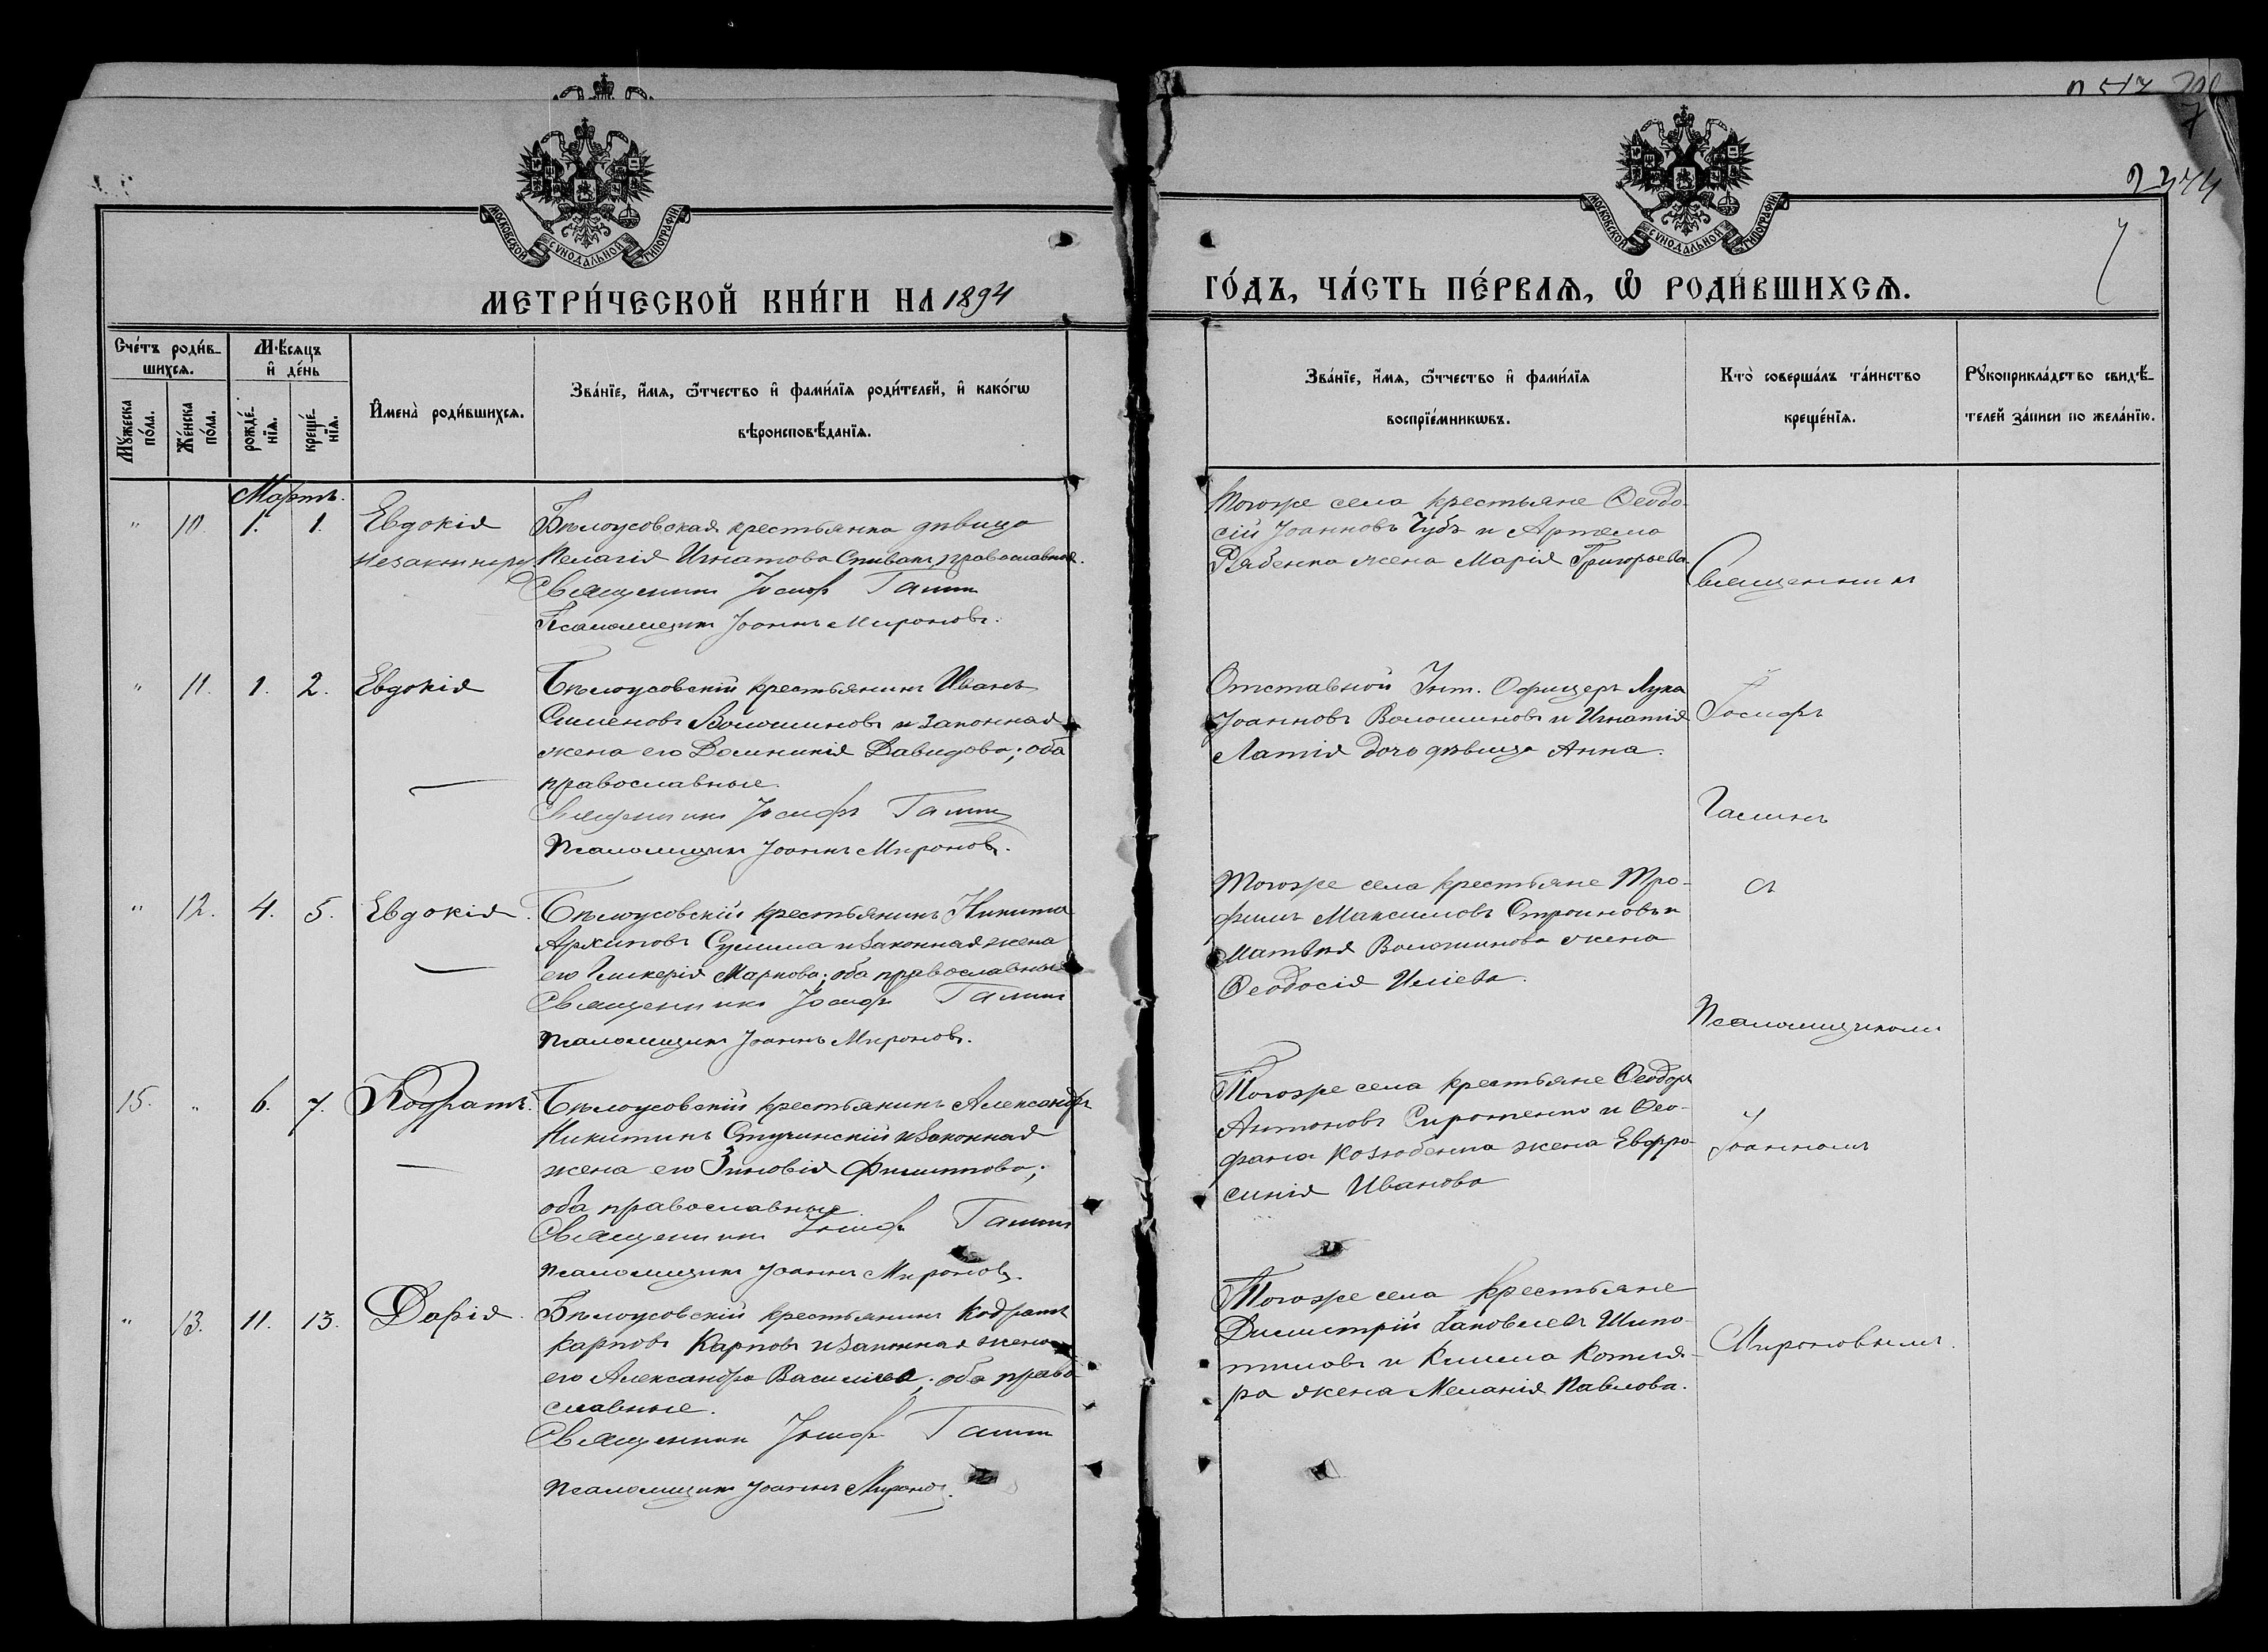 2374
7
МОСКОВСКОЙ СѴНОДАЛЬНОЙ ТИПОГРАФІИ
МОСКОВСКОЙ СѴНОДАЛЬНОЙ ТИПОГРАФІИ
МЕТРИ́ЧЕСКОЙ КНИ́ГИ НА 1894
ГО́ДЪ, ЧА́СТЬ ПЕ́РВАѦ, Ѡ҆ РОДИ́ВШИХСѦ.
Сче́тъ роди́в-
шихсѧ.
Мꙋ́жеска по́ла.
Же́нска по́ла.
Мѣ́сѧцъ
и҆ де́нь
рожде́нїѧ.
креще́нїѧ.
И҆мена̀ роди́вшихсѧ.
Зва́нїе, и҆́мѧ, ѻ҆́тчество и҆ фами́лїѧ роди́телей, и҆ како́гѡ
вѣроисповѣ́данїѧ.
Зва́нїе, и҆́мѧ, ѻ҆́тчество и҆ фами́лїѧ
воспрїе́мникѡвъ.
Кто̀ соверша́лъ та́инство
креще́нїѧ.
Рꙋкоприкла́дство свидѣ́-
телей за́писи по жела́нїю.
Мартъ.
" 10. 1. 1. Евдокія
Бѣлоусовская крестьянка дѣвица
Пелагія Игнатова Спивакъ, православная.
Священникъ Іосифъ Галинъ
Псаломщикъ Іоаннъ Мироновъ.
Тогоже села крестьяне Ѳеодо-
сій Іоанновъ Чубъ и Артема
Рябенка жена Марія Григорьева
Священникъ
" 11. 1. 2. Евдокія
Бѣлоусовскій крестьянинъ Иванъ
Сименовъ Волошиновъ и законная
жена его Домникія Давидова; оба
православные.
Священникъ Іосифъ Галинъ
Псаломщикъ Іоаннъ Мироновъ.
Отставной Унт. Офицеръ Лука
Іоанновъ Волошиновъ и Игнатія
дочь дѣвица Анна.
Іосифъ
Галинъ
" 12. 4. 5. Евдокія.
Бѣлоусовскій крестьянинъ Никита
Архиповъ Сулима и законная жена
его Гликерія Маркова; оба православные
Священникъ Іосифъ Галинъ
Псаломщикъ Іоаннъ Мироновъ.
Тогоже села крестьяне Тро-
фимъ Максимовъ и
Матвѣя Волошинова жена
Ѳеодосія Иліева.
съ
Псаломщикомъ
15. " 6. 7. Кодратъ.
Бѣлоусовскій крестьянинъ Александръ
Никитинъ Стучинскій и законная
жена его Зиновія Филиппова;
оба православные.
Священникъ Іосифъ Галинъ
Псаломщикъ Іоаннъ Мироновъ.
Тогоже села крестьяне Ѳеодоръ
Антоновъ Сиротенко и Ѳео-
фана Козюбенка жена Евфро-
синія Иванова
Іоанномъ
" 13. 11. 13. Дарія.
Бѣлоусовскій крестьянинъ Кодратъ
Карповъ Карповъ и законная жена
его Александра Василіева; оба право-
славные.
Священникъ Іосифъ Галинъ
Псаломщикъ Іоаннъ Мироновъ.
Тогоже села крестьяне
Димитрій Іаковлевъ Шипо-
тиловъ и Клима Котля-
ра жена Меланія Павлова.
Мироновымъ.